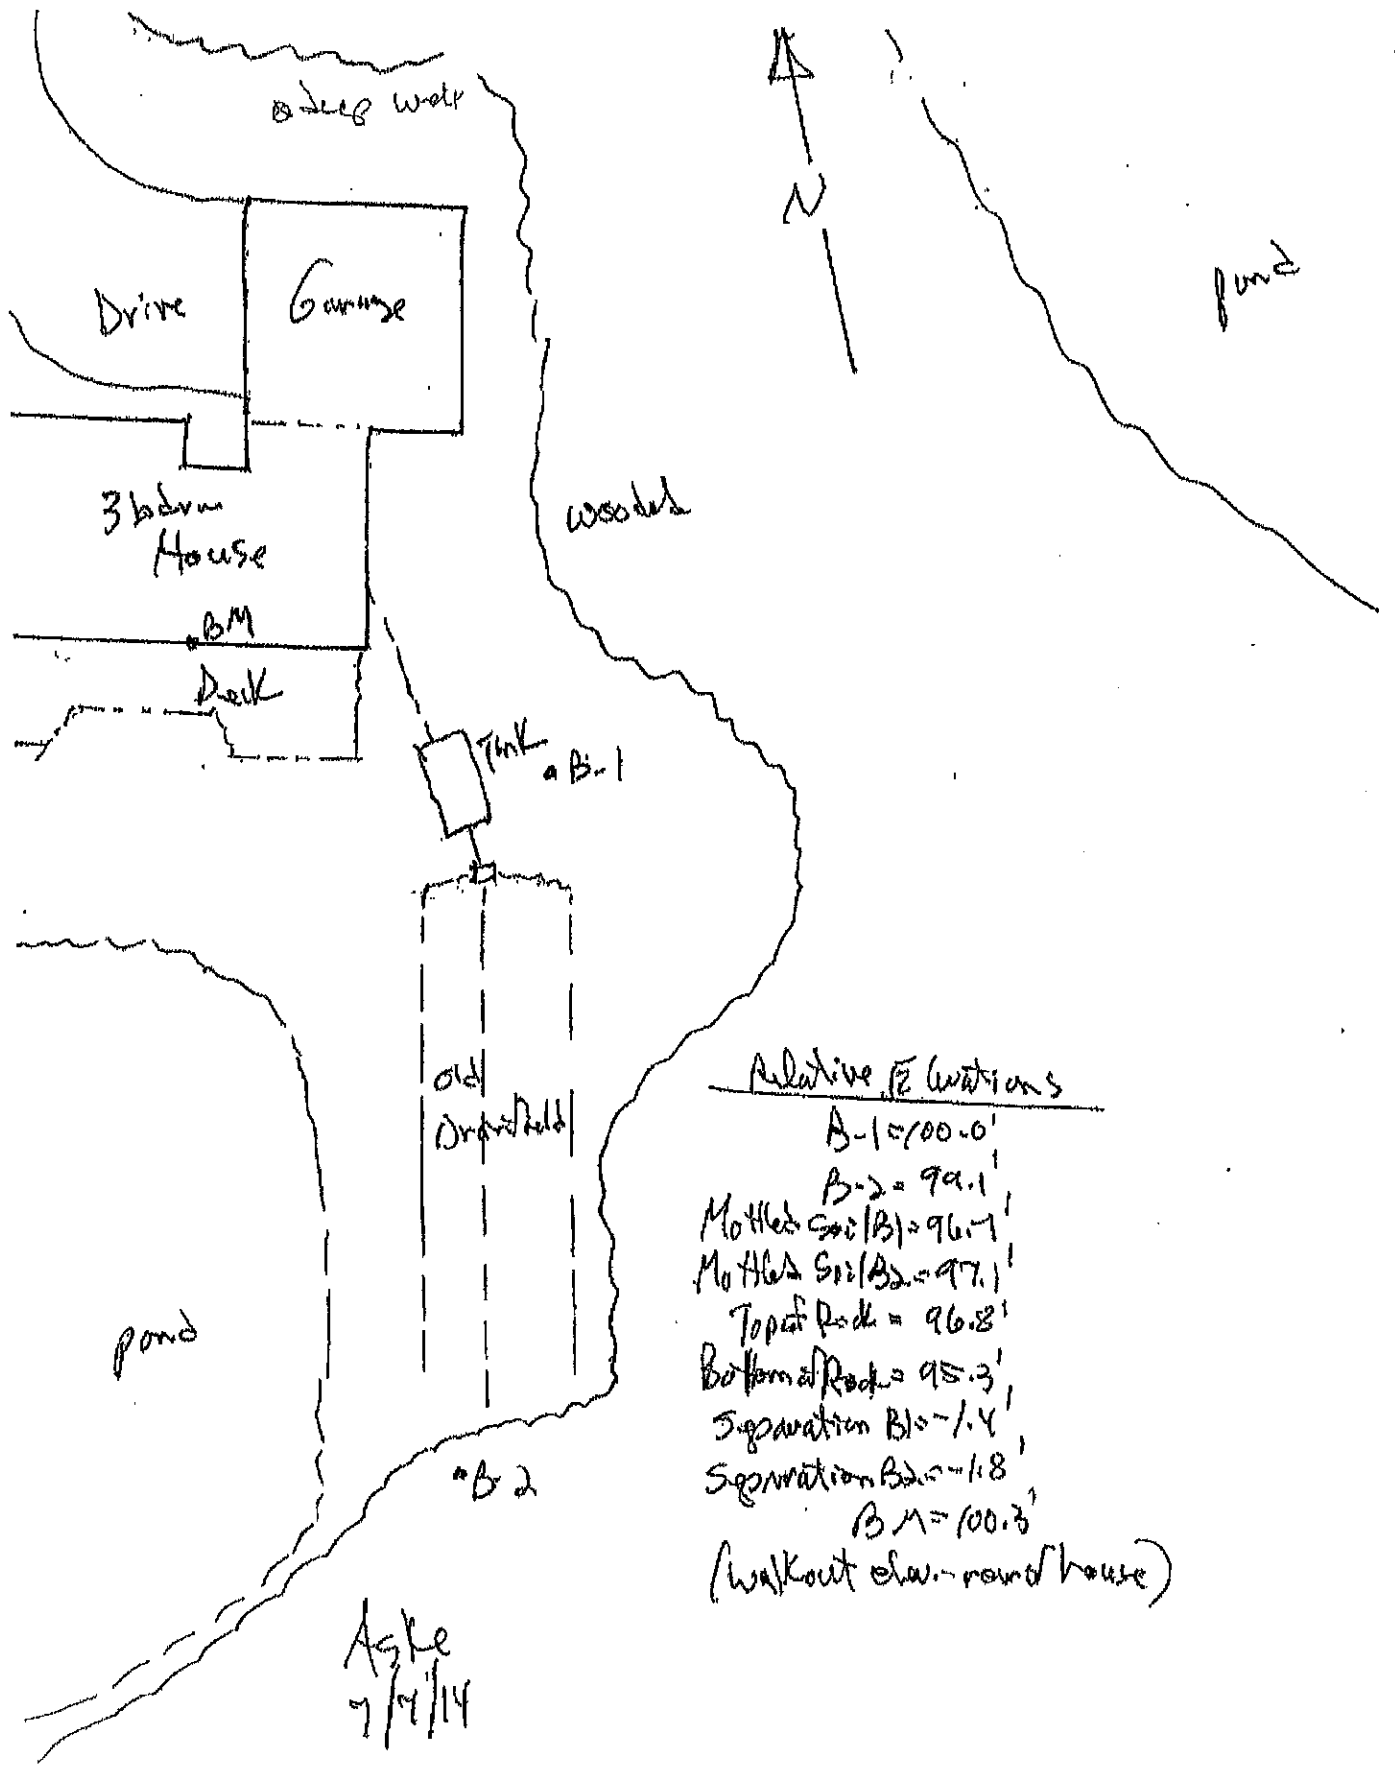 deep well
N
Drive
Garage
pond
3 bdrm
House
wooded
BM
Deck
Tank
B-1
Old
Drainfield
pond
B-2
Relative Elevations
B-1=100.0'
B-2=99.1'
Mottled Soil B1=96.7'
Mottled Soil B2=97.1'
Top of Rock=96.8'
Bottom of Rock=95.3'
Separation B1=-1.4'
Separation B2=-1.8'
BM=100.3'
(walkout elev.-rear of house)
Aske
7/7/14